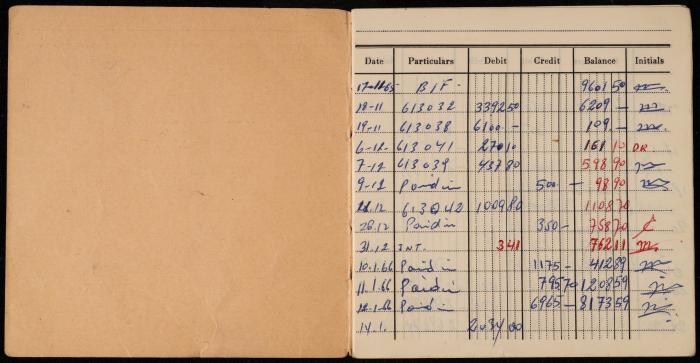 Date Particulars Debit Credit Balance Initials
17-11-65 B/F- 9601 50
18-11 613032 3392 50 6209 -
19-11 613038 6100 - 109 -
6-12- 613041 270 10 161 10 DR
7-12 613039 437 80 598 90
9-12 Paid in 500 - 98 90
613042 1009 80 1108 70
28.12 Paid in 350 - 758 70
31.12 INT. 3 41 762 11
10.1.66 Paid in 1175 - 412 89
11.1.66 Paid in 795 70 1208 59
12-1-66 Paid in 6965 - 8173 59
14.1.